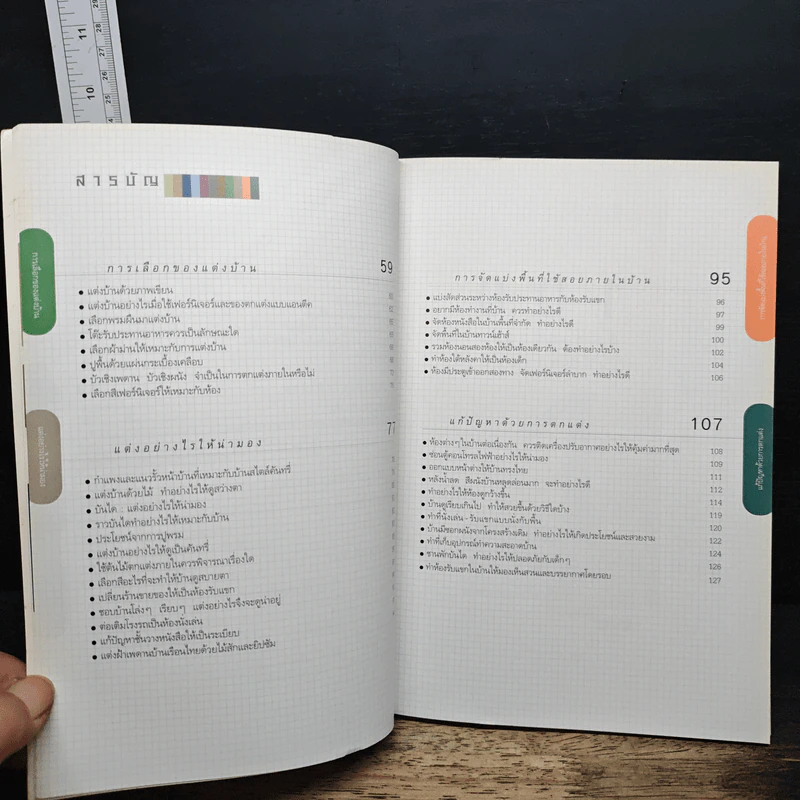 11
10
29
28
27
26
25
24
สารบัญ
การเลือกของแต่งบ้าน
การเลือกของแต่งบ้าน 59
แต่งบ้านด้วยภาพเขียน
แต่งบ้านอย่างไรเมื่อใช้เฟอร์นิเจอร์และของตกแต่งแบบแอนติค
เลือกพรมผืนมาแต่งบ้าน
โต๊ะรับประทานอาหารควรเป็นลักษณะใด
เลือกผ้าม่านให้เหมาะกับการแต่งบ้าน
ปูพื้นด้วยแผ่นกระเบื้องเคลือบ
บัวเชิงเพดาน บัวเชิงผนัง จำเป็นในการตกแต่งภายในหรือไม่
เลือกสีเฟอร์นิเจอร์ให้เหมาะกับห้อง
แต่งอย่างไรให้น่ามอง
แต่งอย่างไรให้น่ามอง 77
กำแพงและแนวรั้วหน้าบ้านที่เหมาะกับบ้านสไตล์คันทรี่
แต่งบ้านด้วยไม้ ทำอย่างไรให้ดูสว่างตา
บันได : แต่งอย่างไรให้น่ามอง
ราวบันไดทำอย่างไรให้เหมาะกับบ้าน
ประโยชน์จากการปูพรม
แต่งบ้านอย่างไรให้ดูเป็นคันทรี่
ใช้ต้นไม้ตกแต่งภายในควรพิจารณาเรื่องใด
เลือกสีอะไรที่จะทำให้บ้านดูสบายตา
เปลี่ยนร้านขายของให้เป็นห้องรับแขก
ชอบบ้านโล่งๆ เรียบๆ แต่งอย่างไรจึงจะดูน่าอยู่
ต่อเติมโรงรถเป็นห้องนั่งเล่น
แก้ปัญหาชั้นวางหนังสือให้เป็นระเบียบ
แต่งฝ้าเพดานบ้านเรือนไทยด้วยไม้สักและยิปซัม
การจัดแบ่งพื้นที่ใช้สอยภายในบ้าน 95
แบ่งสัดส่วนระหว่างห้องรับประทานอาหารกับห้องรับแขก 96
อยากมีห้องทำงานที่บ้าน ควรทำอย่างไรดี 97
จัดห้องหนังสือในบ้านพื้นที่จำกัด ทำอย่างไรดี 99
จัดพื้นที่ในบ้านทาวน์เฮ้าส์ 100
รวมห้องนอนสองห้องให้เป็นห้องเดียวกัน ต้องทำอย่างไรบ้าง 102
ทำห้องใต้หลังคาให้เป็นห้องเด็ก 104
ห้องมีประตูเข้าออกสองทาง จัดเฟอร์นิเจอร์ลำบาก ทำอย่างไรดี 106
แก้ปัญหาด้วยการตกแต่ง 107
ห้องต่างๆ ในบ้านต่อเนื่องกัน ควรติดเครื่องปรับอากาศอย่างไรให้คุ้มค่ามากที่สุด 108
ซ่อนตู้คอนโทรลไฟฟ้าอย่างไรให้น่ามอง 109
ออกแบบหน้าต่างให้บ้านทรงไทย 111
หลังน้ำลด สีผนังบ้านหลุดล่อนมาก จะทำอย่างไรดี 112
ทำอย่างไรให้ห้องดูกว้างขึ้น 114
บ้านดูเรียบเกินไป ทำให้สวยขึ้นด้วยวิธีใดบ้าง 117
ทำที่นั่งเล่น - รับแขกแบบนั่งกับพื้น 119
บ้านมีซอกผนังจากโครงสร้างเดิม ทำอย่างไรให้เกิดประโยชน์และสวยงาม 120
ทำที่เก็บอุปกรณ์ทำความสะอาดบ้าน 122
ชานพักบันได ทำอย่างไรให้ปลอดภัยกับเด็กๆ 124
ทำห้องรับแขกในบ้านให้มองเห็นสวนและบรรยากาศโดยรอบ 126
127
แก้ปัญหาด้วยการตกแต่ง